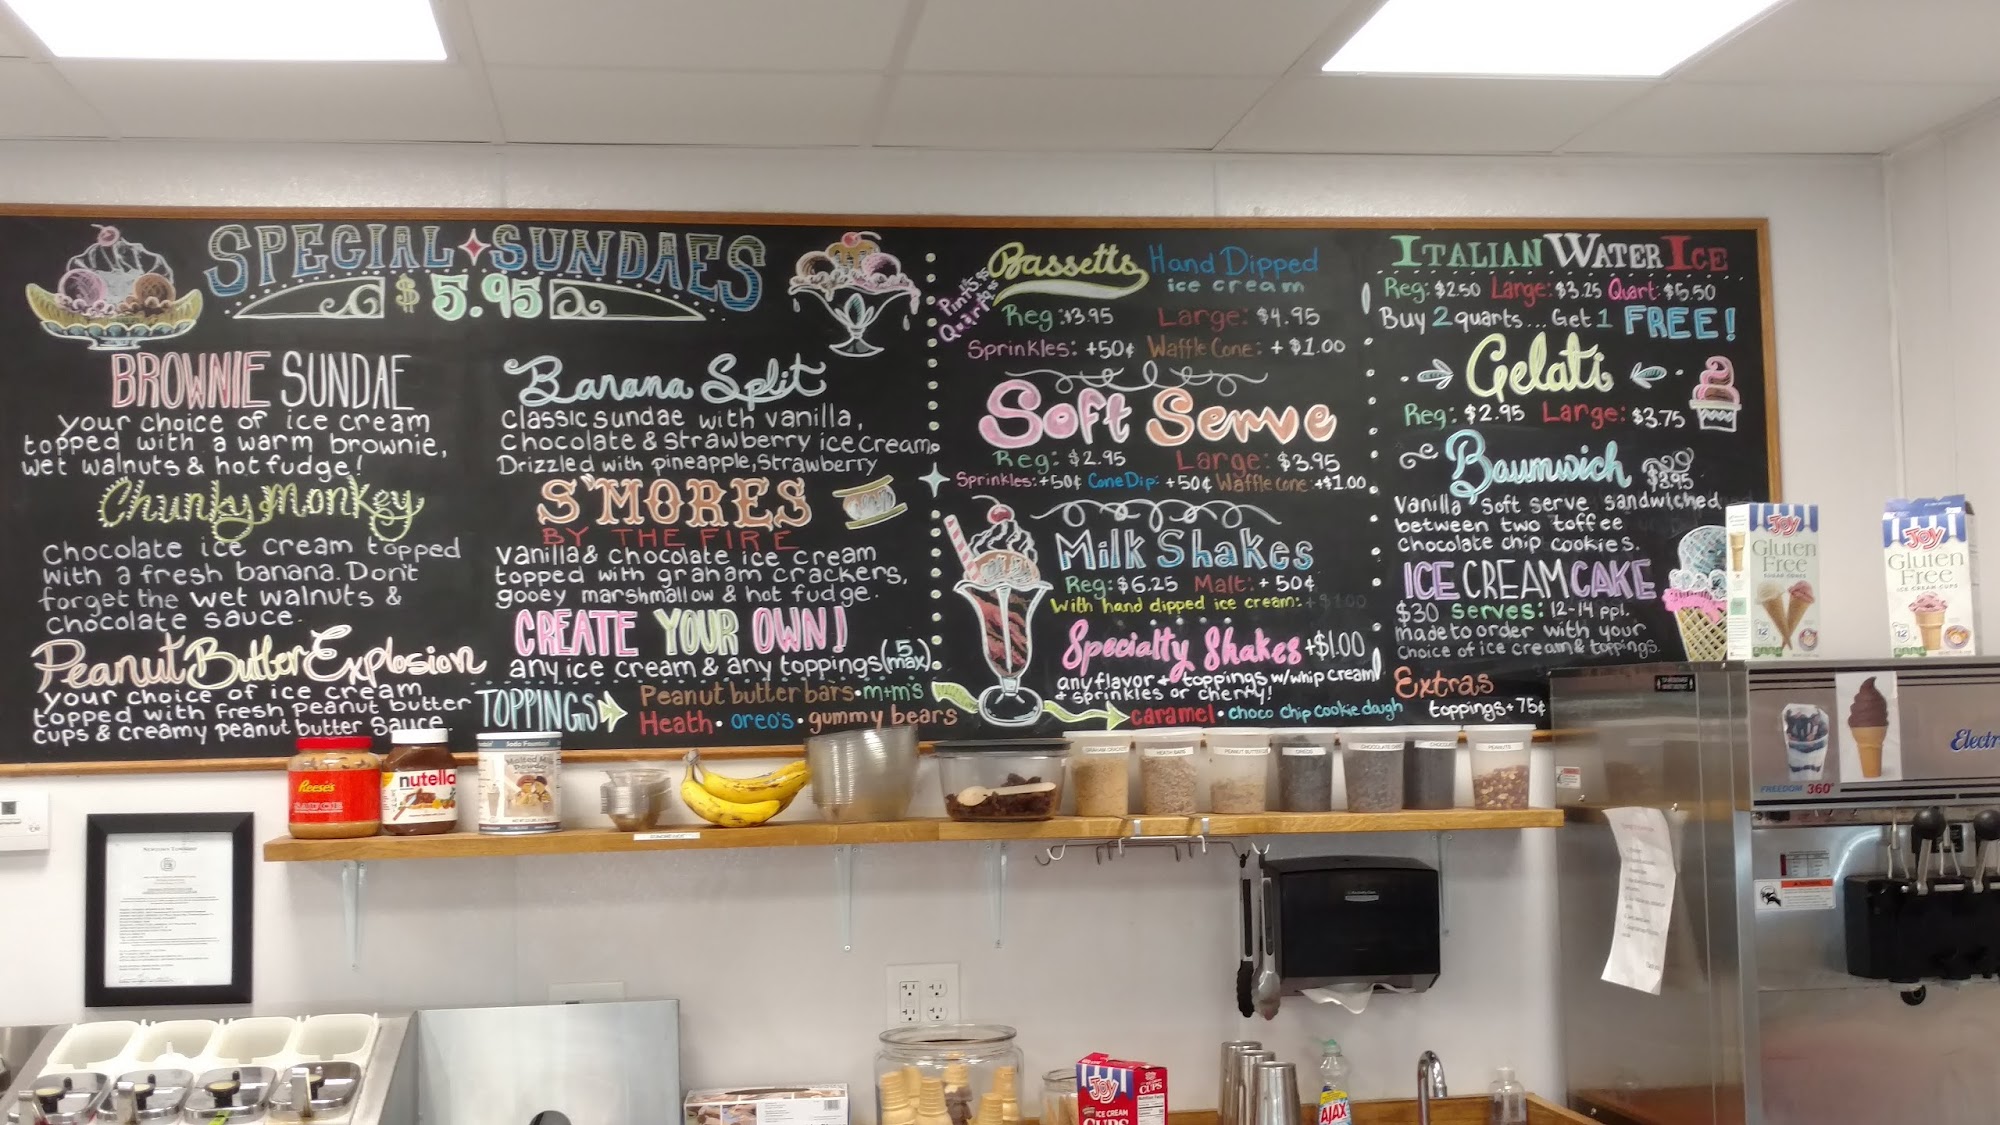 SPECIAL SUNDAES
$ 5.95
BROWNIE SUNDAE
your choice of ice cream
topped with a warm brownie,
wet walnuts & hot fudge!
Chunky Monkey
Chocolate ice cream topped
with a fresh banana. Don't
forget the wet walnuts &
chocolate sauce.
Peanut Butter Explosion
your choice of ice cream
topped with fresh peanut butter
cups & creamy peanut butter sauce.
Banana Split
Classic sundae with vanilla,
Chocolate & Strawberry ice cream.
Drizzled with pineapple, strawberry
S'MORES
BY THE FIRE
Vanilla & chocolate ice cream
topped with graham crackers,
gooey marshmallow & hot fudge.
CREATE YOUR OWN!
any ice cream & any toppings (5 max).
TOPPINGS
Peanut butter bars • m+m's
Heath • oreo's • gummy bears
caramel • choco chip cookie dough
Bassetts Hand Dipped
ice cream
Reg: $3.95 Large: $4.95
Sprinkles: +50¢ Waffle Cone: + $1.00
Soft Serve
Reg: $2.95 Large: $3.95
Sprinkles: +50¢ Cone Dip: +50¢ Waffle cone: +$1.00
Milk Shakes
Reg: $6.25 Malt: + 50¢
With hand dipped ice cream: + $1.00
Specialty Shakes +$1.00
any flavor + toppings w/whip cream
+ sprinkles or cherry!
ITALIAN WATER ICE
Reg: $2.50 Large: $3.25 Quart: $5.50
Buy 2 quarts... Get 1 FREE!
Gelati
Reg: $2.95 Large: $3.75
Baumwich $3.95
Vanilla soft serve sandwiched
between two toffee
chocolate chip cookies.
ICE CREAM CAKE
$30 serves: 12-14 ppl.
made to order with your
choice of ice cream & toppings.
Extras
toppings + 75¢
JOY
Gluten
Free
SUGAR CONES
12
JOY
Gluten
Free
ICE CREAM CUPS
12
Reese's
nutella
Malted Milk
Powder
GRAHAM CRACKER
HEATH BARS
OREOS
PEANUTS
FREEDOM 360°
Electr
JOY
ICE CREAM
CUPS
JOY
CUPS
AJAX